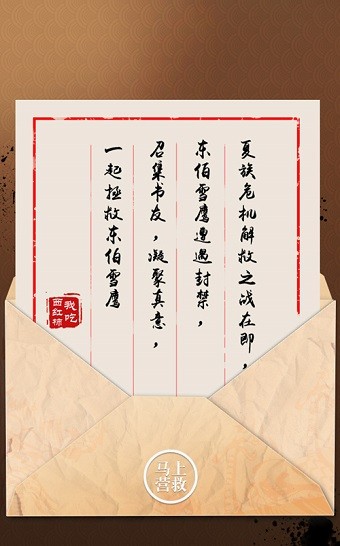 夏族危机解救之战在即，
东伯雪鹰遭遇封禁，
召集书友，凝聚真意，
一起拯救东伯雪鹰
我吃
西红柿
马上
营救